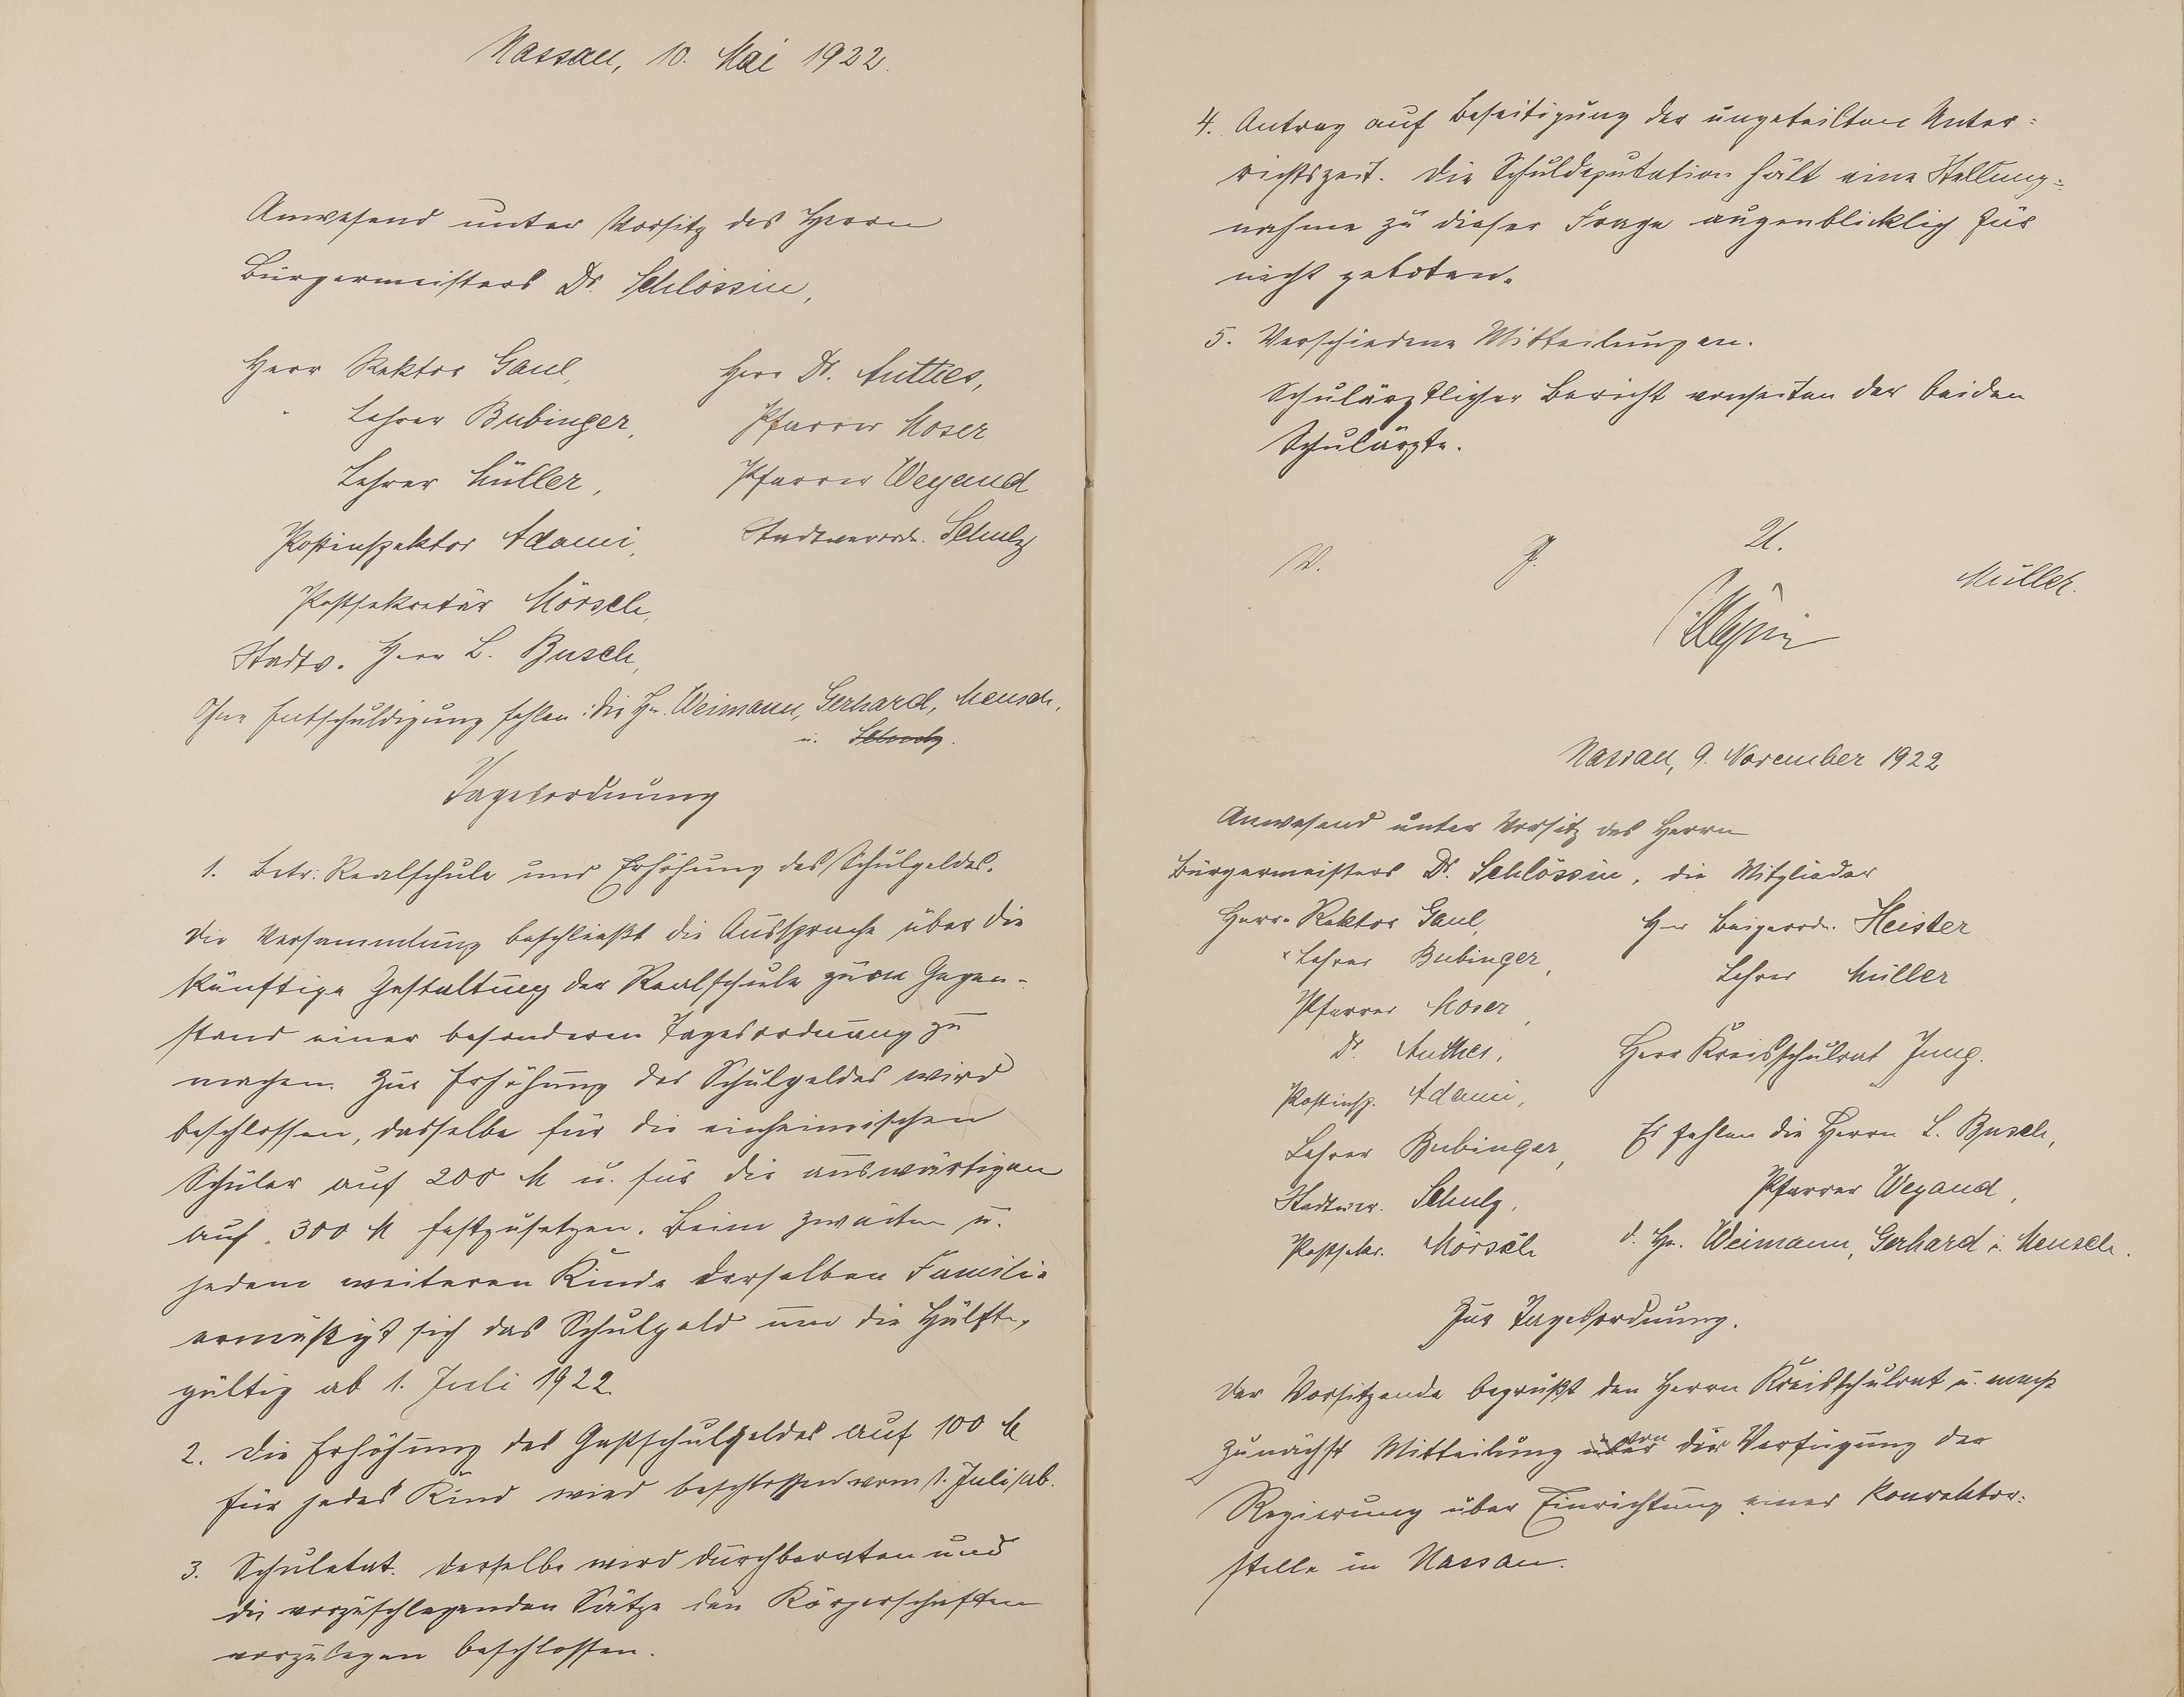 Nassau, 10. Mai 1922.
Anwesend unter Vorsitz des Herrn
Bürgermeisters Dr. Schlössin,
Herr Rektor Gaul,
" Lehrer Bubinger,
Lehrer Müller,
Postinspektor Adami,
Postsekretär Mörsch,
Stadtv. Herr L. Busch,
Herr Dr. Anthes,
Pfarrer Moser
Pfarrer Weyand
Stadtverord. Schulz
Ohne Entschuldigung fehlen: die Hn. Weimann, Gerhard, Mensch,
u. Schulz.
Tagesordnung
1. Betr: Realschule und Erhöhung des Schulgeldes.
Die Versammlung beschließt die Aussprache über die
künftige Gestaltung der Realschule zum Gegen-
stand einer besonderen Tagesordnung zu
machen. Zur Erhöhung des Schulgeldes wird
beschlossen, dasselbe für die einheimischen
Schüler auf 200 M u. für die auswärtigen
auf 300 M festzusetzen. Beim zweiten u.
jedem weiteren Kinde derselben Familie
ermäßigt sich das Schulgeld um die Hälfte,
gültig ab 1. Juli 1922.
2. Die Erhöhung des Gastschulgeldes auf 100 M
für jedes Kind wird beschlossen vom 1. Juli ab.
3. Schuletat. Derselbe wird durchberaten und
die vorzuschlagenden Sätze den Körperschaften
vorzulegen beschlossen.
4. Antrag auf Beseitigung der ungeteilten Unter=
richtszeit. Die Schuldeputation hält eine Stellung=
nahme zu dieser Frage augenblicklich für
nicht geboten.
5. Verschiedene Mitteilungen.
Schulärztlicher Bericht vonseiten der beiden
Schulärzte.
V. g. U.
Müller.
Nassau, 9. November 1922
Anwesend unter Vorsitz des Herrn
Bürgermeisters Dr. Schlössin, die Mitglieder
Herr Rektor Gaul,
" Lehrer Bubinger,
Pfarrer Moser,
Dr. Anthes,
Postinsp. Adami,
Lehrer Bubinger,
Stadtver. Schulz,
Postsekr. Mörsch
Herr Beigeord. Heister
Lehrer Müller
Herr Kreisschulrat Jung.
Es fehlen die Herrn L. Busch,
Pfarrer Weyand,
d. Hn. Weimann, Gerhard u. Mensch.
Zur Tagesordnung.
Der Vorsitzende begrüßt den Herrn Kreisschulrat u. macht
zunächst Mitteilung über von der Verfügung der
Regierung über Einrichtung einer Konrektor=
stelle in Nassau.